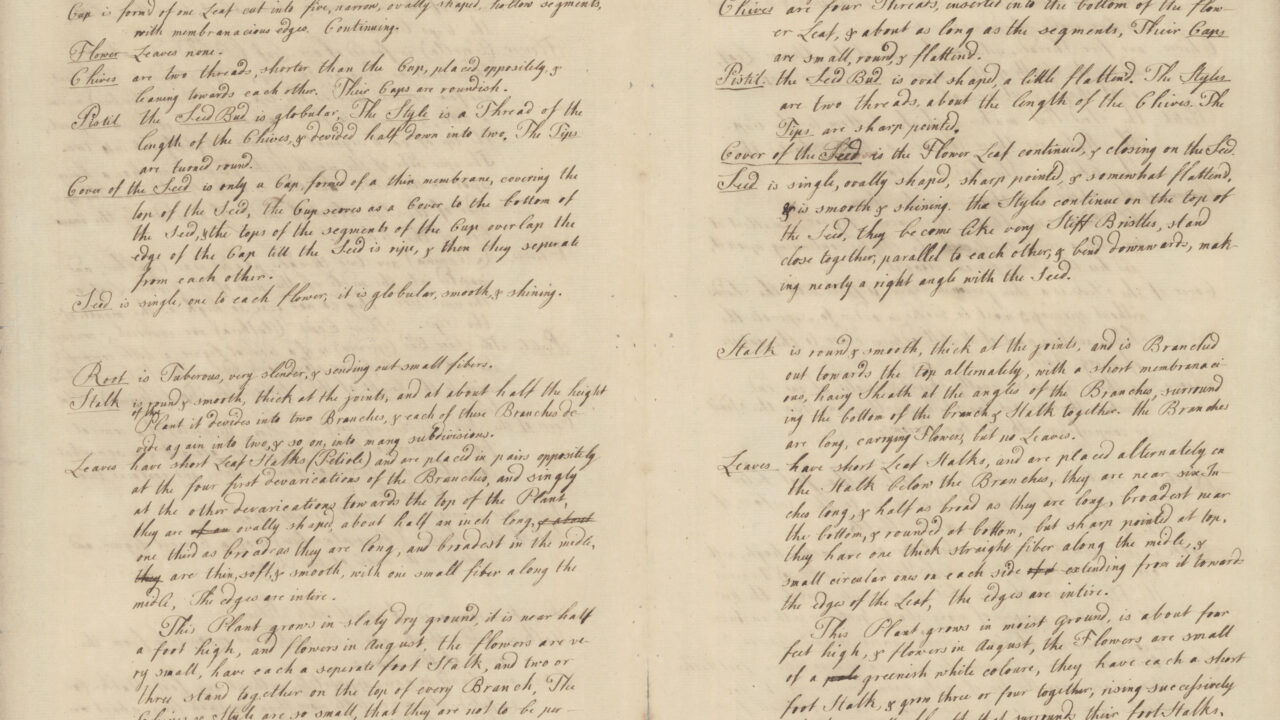 Cup is formd of one Leaf cut into five, narrow, ovally shaped, hollow segments,
with membranacious edges. Continuing.
Flower Leaves none.
Chives are two threads, shorter than the Cup, placed oppositely, &
leaning towards each other. Their Caps are roundish.
Pistil the Seed Bud is globular, The Style is a Thread of the
length of the Chives, & devided half down into two, The Tips
are turned round.
Cover of the Seed is only a Cap, formed of a thin membrane, covering the
top of the Seed, the Cup serves as a Cover to the bottom of
the Seed, & the tops of the segments of the Cup overlap the
edge of the Cap till the Seed is ripe, & then they seperate
from each other.
Seed is single, one to each flower, it is globular, smooth, & shining.
Root is Tuberous, very slender, & sending out small fibers.
Stalk is round & smooth, thick at the joints, and at about half the height
of the Plant it devides into two Branches, & each of these Branches de-
vide again into two, & so on, into many subdivisions.
Leaves have short Leaf Stalks (Petiole) and are placed in pairs oppositely
at the four first devarications of the Branches, and singly
at the other devarications towards the top of the Plant,
they are of an ovally shaped, about half an inch long, & about
one third as broad as they are long, and broadest in the midle,
they are thin, soft, & smooth, with one small fiber along the
midle, The edges are intire.
This Plant grows in slaty dry ground, it is near half
a foot high, and flowers in August, the flowers are ve-
ry small, have each a seperate foot Stalk, and two or
three stand together on the top of every Branch, The
Chives & Style are so small, that they are not to be per-
Chives are four Threads, inserted into the bottom of the flow-
er Leaf, & about as long as the segments, Their Caps
are small, round, & flattend.
Pistil the Seed Bud is ovil shaped, a little flattend. The Styles
are two threads, about the length of the Chives. The
Tips are sharp pointed.
Cover of the Seed is the Flower Leaf continued, & closing on the Seed.
Seed is single, ovally shaped, sharp pointed, & somewhat flattend,
& is smooth & shining. the Styles continue on the top of
the Seed, they become like very Stiff Bristles, stand
close together, parallel to each other, & bend downwards, mak-
ing nearly a right angle with the Seed.
Stalk is round & smooth, thick at the joints, and is Branched
out towards the top alternately, with a short membranaci-
ous, hairy Sheath at the angles of the Branches, surround
ing the bottom of the branch & Stalk together. the Branches
are long, carrying Flowers, but no Leaves.
Leaves have short Leaf Stalks, and are placed alternately on
the Stalk below the Branches, they are near six In-
ches long, & half as broad as they are long, broadest near
the bottom, & rounded at bottom, but sharp pointed at top,
they have one thick straight fiber along the midle, &
small circular ones on each side extending from it towards
the edges of the Leaf, the edges are intire.
This Plant grows in moist Ground, is about four
feet high, & flowers in August, the Flowers are small
of a greenish white coloure, they have each a short
foot Stalk, & grow three or four together, rising successively
that surrounds their foot Stalks.